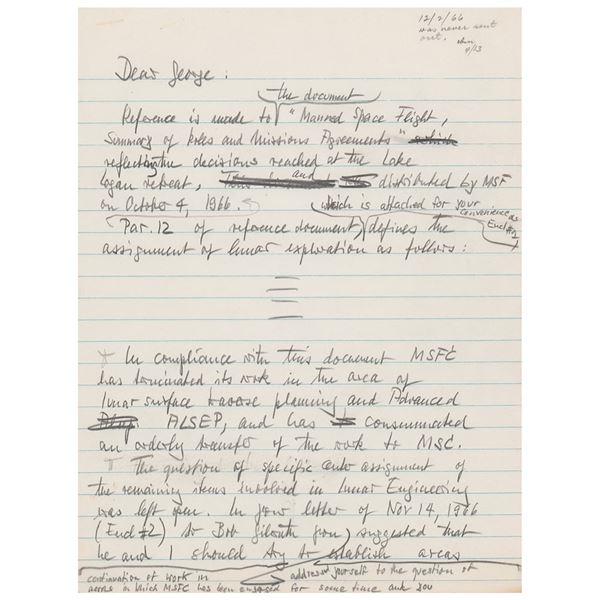 12/2/66
was never sent
out.
9/13
Dear George:
the document
Reference is made to "Manned Space Flight,
Summary of Roles and Missions Agreements" which
reflecting the decisions reached at the Lake
Logan retreat, and distributed by MSF
on October 4, 1966. which is attached for your convenience as
Encl #1
Par. 12 of reference document, defines the
assignment of lunar exploration as follows:
In compliance with this document MSFC
has terminated its work in the area of
lunar surface traverse planning and Advanced
ALSEP, and has consummated
an orderly transfer of the work to MSC.
The question of specific center assignment of
the remaining items involved in Lunar Engineering
was left open. In your letter of Nov 14, 1966
(Encl #2) to Bob Gilruth you suggested that
he and I should try to establish areas
continuation of work in addressed yourself to the question of
areas in which MSFC has been engaged for some time and you